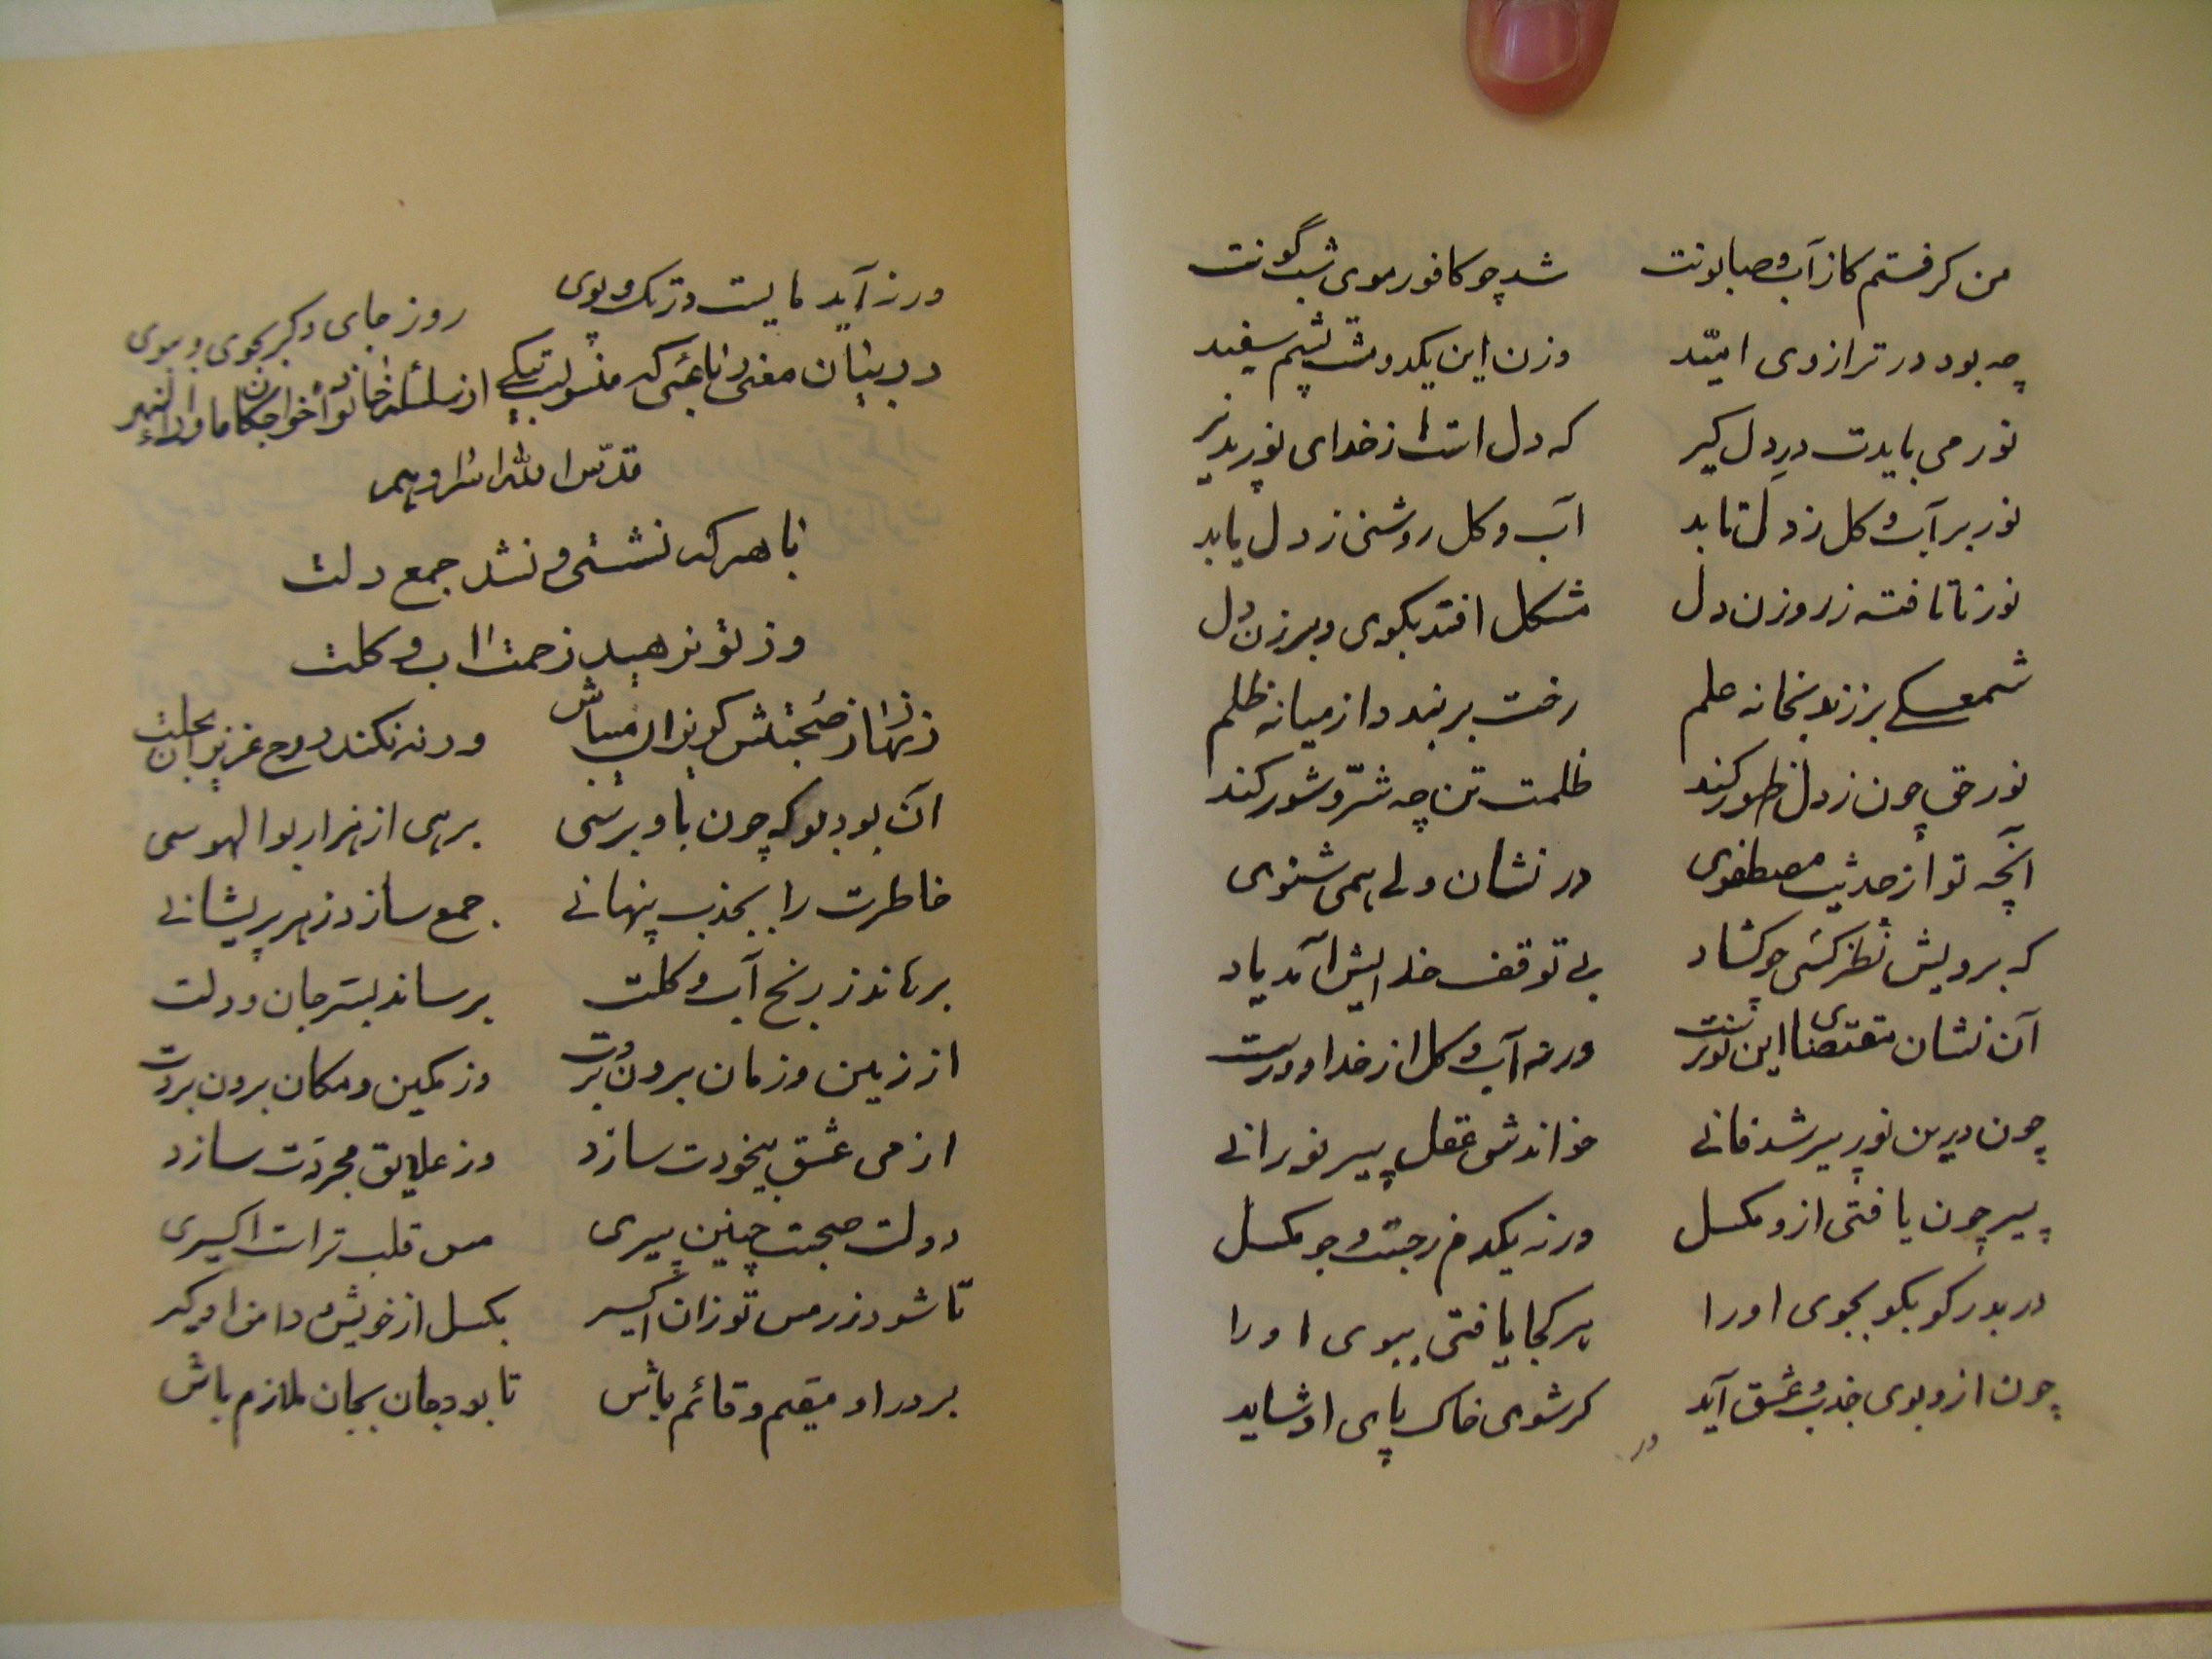 من کرفتم کاز آب و صابونت شد چو کافور موی شب گونت
چه بود در ترازوی امیّد وزن این یکدو مشت پشم سفید
نور می بایدت درِ دل کیر که دل است از خدای نور پذیر
نور بر آب و کل ز دل تابد آب و کل روشنی ز دل یابد
نور ناتافته ز روزن دل مشکل افتد بکوی و برزن دل
شمع کے برزند بخانه علم رخت بربندد از میانه ظلم
نور حق چون ز دل ظهور کند ظلمت تن چه شرّ و شور کند
آنچه تو از حدیث مصطفوی در نشان ولے همی شنوی
که برویش نظر کسی چو کشاد بے توقف خدایش آمد یاد
آن نشان مقتضای این نورست ورنه آب و کل از خدا دورست
چون درین نور پیر شد فانے خواندش عقل پیر نورانے
پیر چون یافتی ازو مکسل ورنه یکدم ز جست و جو مکسل
در بدر کو بکو بجوی او را هر کجا یافتی ببوی او را
چون ازو بوی جذب و عشق آید کر شوی خاک پای او شاید
ور
ور ز آید مایست در تک و پوی روز جای دکر بجوی و ببوی
در بیان معنی رباعئی که منسوبست بیکے از سلسله خانواده خواجکان ماوراء النهر
قدّس الله اسرارهم
با هر که نشستی و نشد جمع دلت
وز تو نرهید زحمت آب و کلت
زنهار ز صحبتش کریزان میباش ورنه نکند روح عزیزان بحلت
آن بود بو که چون باو برسی برهی از هزار بوالهوسی
خاطرت را بجذب پنهانے جمع سازد ز هر پریشانے
برهاند ز رنج آب و کلت برساند بسرّ جان و دلت
از زمین و زمان برون بردت وز مکین و مکان برون بردت
از می عشق بیخودت سازد وز علایق مجردت سازد
دولت صحبت چنین پیری مس قلب تراست اکسیری
تا شود زر مس تو زان اکسیر بکسل از خویش و دامن او کیر
بر در او مقیم و قائم باش تا بود جان بجان ملازم باش